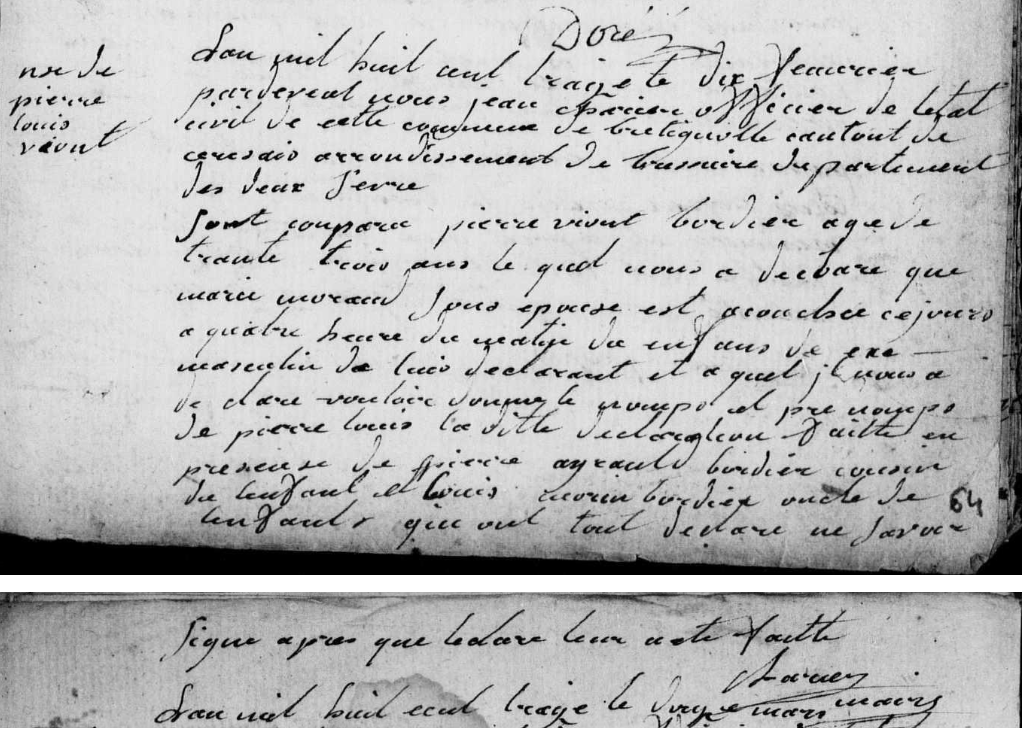 Doré
nce de
pierre
louis
viont
Lan mil huit cent traize le dix feaurier
pardevent nous jean charier officier de letat
civil de cette commune de bretignolle cantont de
cerisais arrondissement de bressuire departement
des deux sevre
sont compara pierre viont bordier age de
trante trois ans le quel nous a declare que
marie moraud sous epouse est acouchee ce jours
a quatre heure du matin du enfans de sexe
masculin de luis declarant et a quel jl nous a
declare vouloir donne le nomps et pre nomps
de pierre louis la ditte declaration faitte en
presense de pierre ayrault bordier cousin
du lenfant et louis morin bordier oncle de
lenfants qui ont tout declare ne savoir
64
signe apres que lecture leur a ete faitte
Lan mil huit cent traize le mars
maire